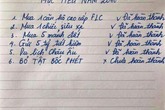 MỤC TIÊU NĂM
1. Mua căn hộ cao cấp FLC ✓ Đã hoàn thành
2. Mua 1 chiếc siêu xe ✓ Đã hoàn thành
3. Mua 5 mảnh đất ✓ Đã hoàn thành
4. Gửi 5 tỷ tiết kiệm ✓ Đã hoàn thành
5. Du lịch Châu Âu ✓ Đã hoàn thành
6. BỎ TẬT BỐC PHÉT ✓ Chưa hoàn thành